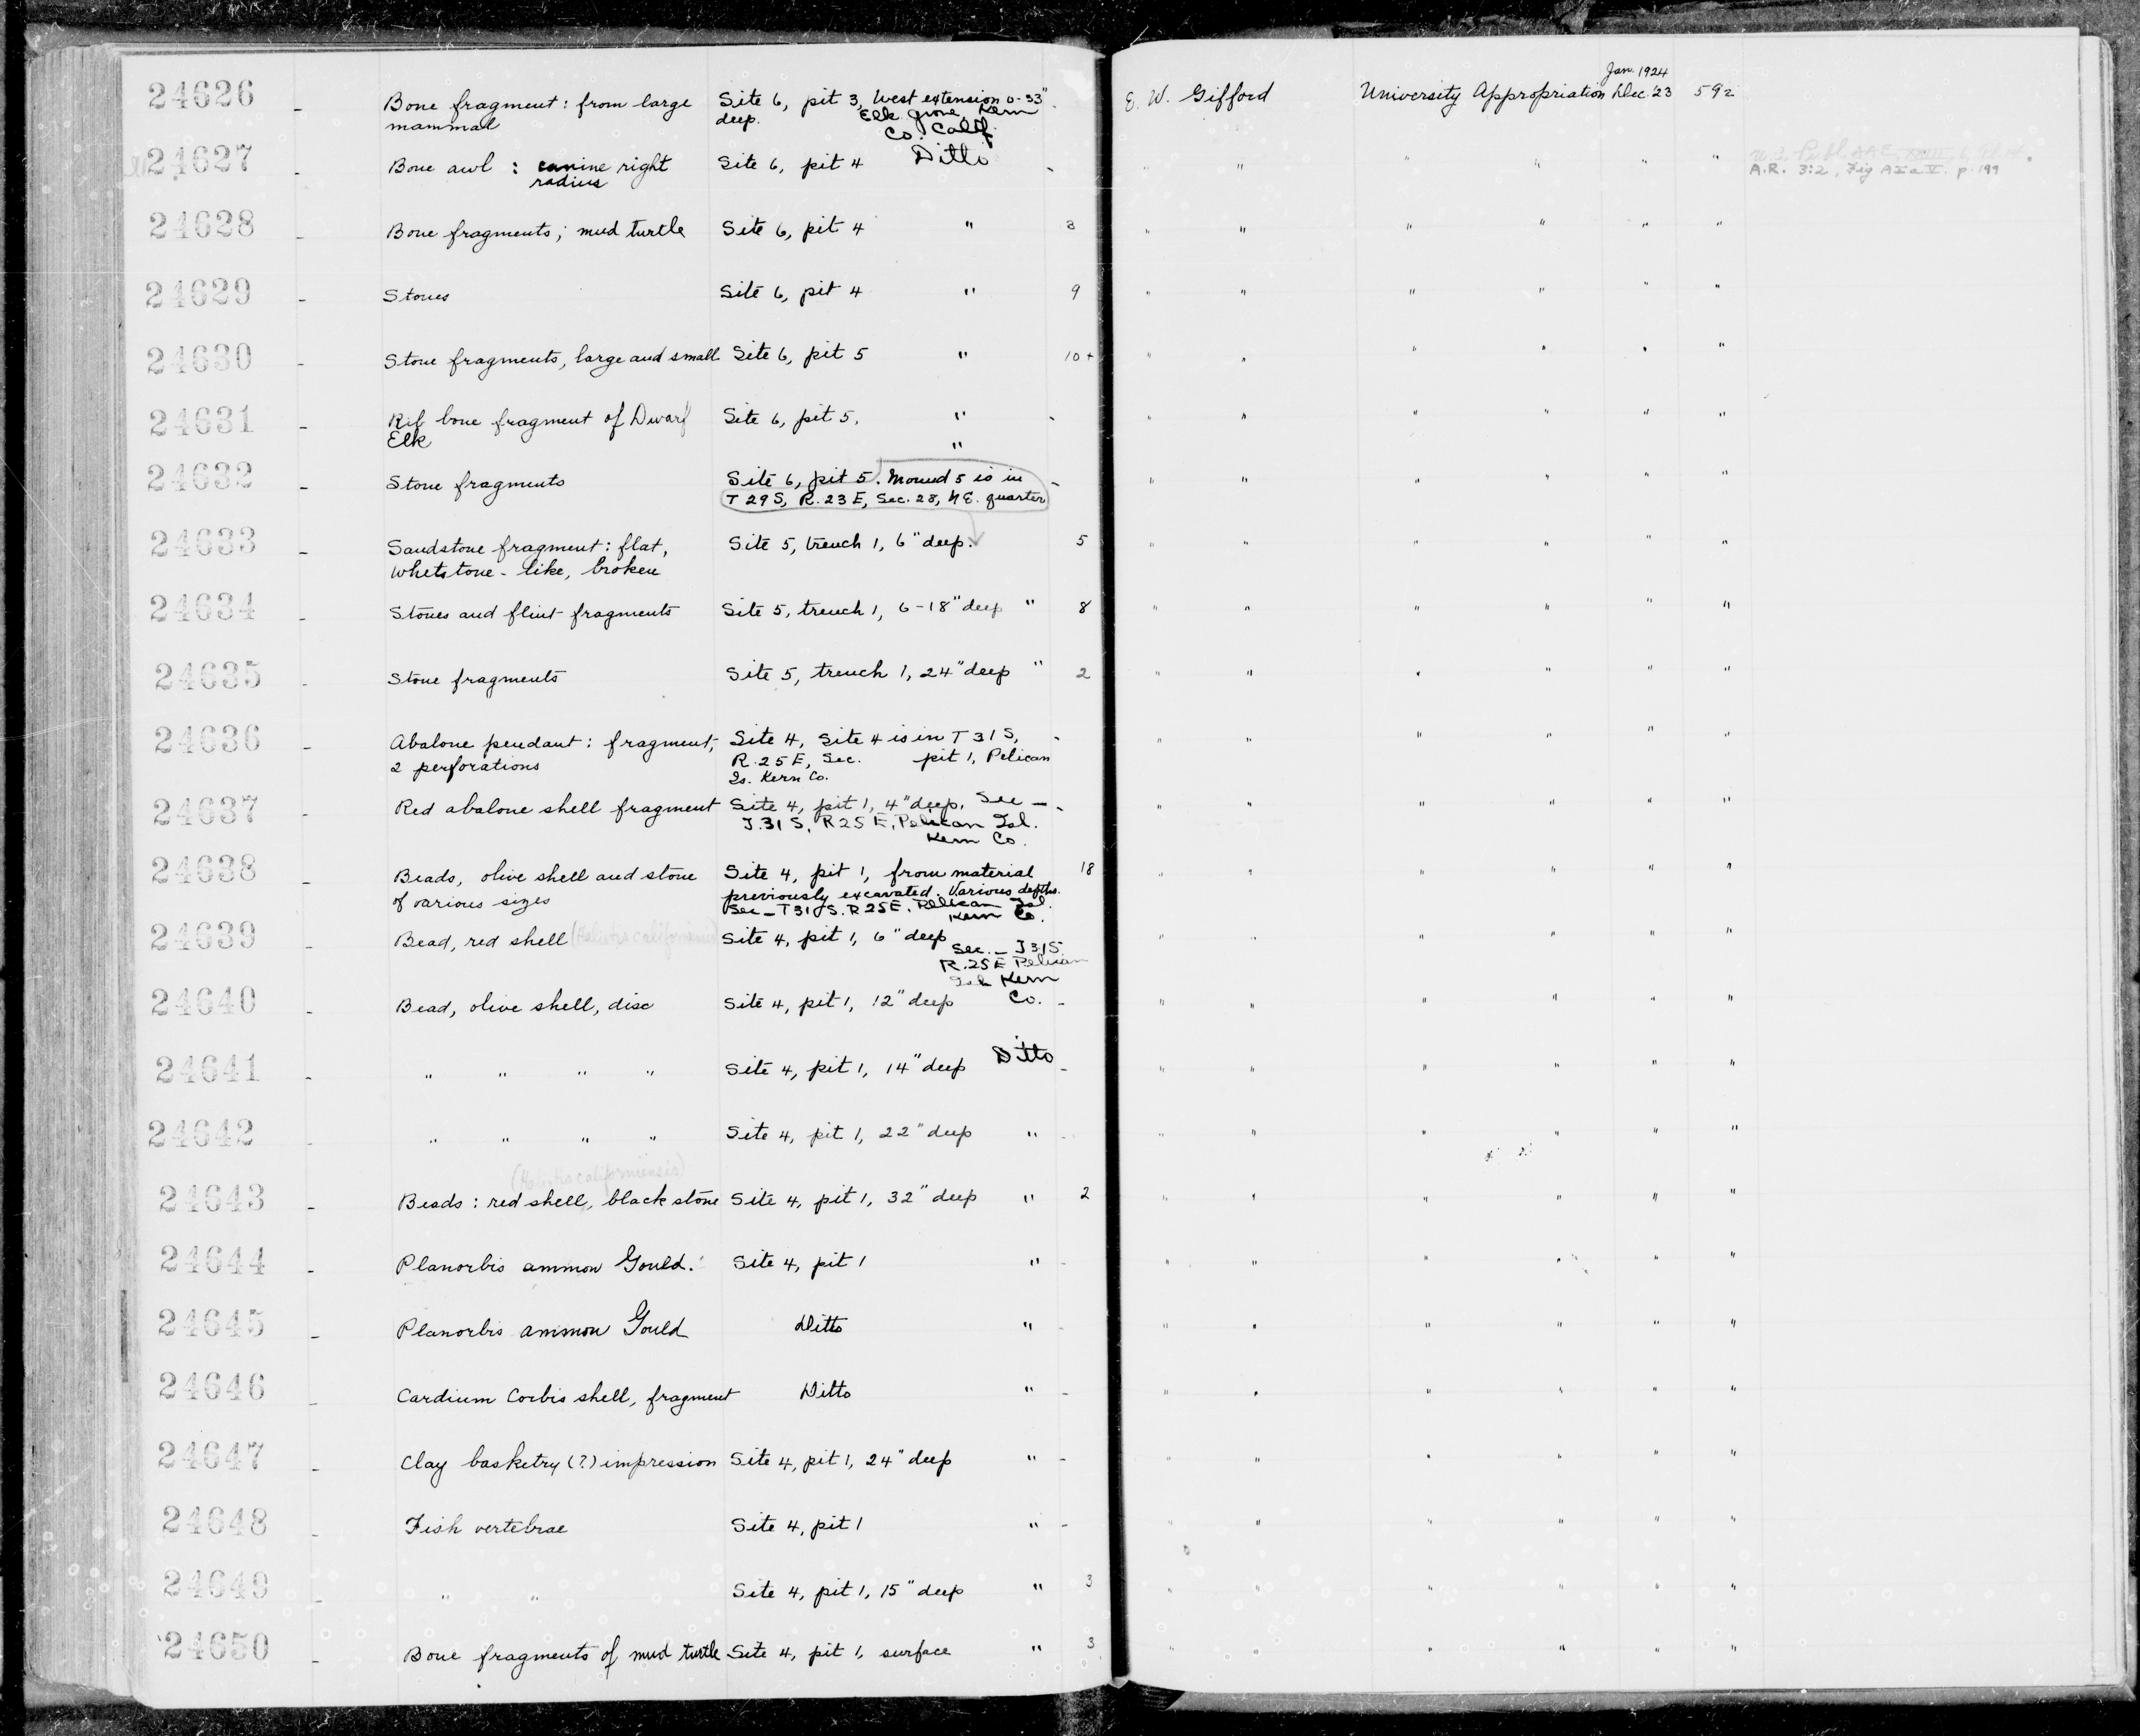 24626 - Bone fragment: from large Site 6, pit 3, West extension 0-33" E. W. Gifford University Appropriation Dec. '23 592
Jan. 1924
mammal deep. Elk Grove, Kern
Co. Calif.
24627 Bone awl : canine right Site 6, pit 4 Ditto - " " " " "
radius
A.R. 3:2, Fig A I a V. p. 199
24628 - Bone fragments; mud turtle Site 6, pit 4 " 3 " " " " " "
24629 - Stones Site 6, pit 4 " 9 " " " " " "
24630 - Stone fragments, large and small Site 6, pit 5 " 10+ " " " " " "
24631 - Rib bone fragment of Dwarf Site 6, pit 5. " - " " " " " "
Elk "
24632 - Stone fragments Site 6, pit 5. Mound 5 is in - " " " " " "
T 29 S, R. 23 E, Sec. 28, N E. quarter
24633 - Sandstone fragment: flat, Site 5, trench 1, 6" deep. 5 " " " " " "
whetstone-like, broken
24634 - Stones and flint fragments Site 5, trench 1, 6-18" deep " 8 " " " " " "
24635 - Stone fragments Site 5, trench 1, 24" deep " 2 " " " " " "
24636 - Abalone pendant: fragment; Site 4, Site 4 is in T 31 S, - " " " " " "
2 perforations R. 25 E, Sec. pit 1, Pelican
Is. Kern Co.
24637 - Red abalone shell fragment Site 4, pit 1, 4" deep. Sec — - " " " " " "
T. 31 S, R 25 E, Pelican Isl.
Kern Co.
24638 - Beads, olive shell and stone Site 4, pit 1, from material 18 " " " " " "
of various sizes previously excavated. Various depths.
Sec — T 31 S. R 25 E. Pelican Isl.
Kern Co.
24639 - Bead, red shell (Haliotis californiensis) Site 4, pit 1, 6" deep " " " " " "
Sec. — T 31 S
R. 25 E Pelican
Isl. Kern
24640 - Bead, olive shell, disc Site 4, pit 1, 12" deep Co. - " " " " " "
24641 - " " " " Site 4, pit 1, 14" deep Ditto - " " " " " "
24642 - " " " " Site 4, pit 1, 22" deep " - " " " " " "
(Haliotis californiensis)
24643 - Beads : red shell, black stone Site 4, pit 1, 32" deep " 2 " " " " " "
24644 - Planorbis ammon Gould. Site 4, pit 1 " - " " " " " "
24645 - Planorbis ammon Gould Ditto " - " " " " " "
24646 - Cardium Corbis shell, fragment Ditto " - " " " " " "
24647 - Clay basketry (?) impression Site 4, pit 1, 24" deep " - " " " " " "
24648 - Fish vertebrae Site 4, pit 1 " - " " " " " "
24649 - " " Site 4, pit 1, 15" deep " 3 " " " " " "
24650 - Bone fragments of mud turtle Site 4, pit 1, surface " 3 " " " " " "